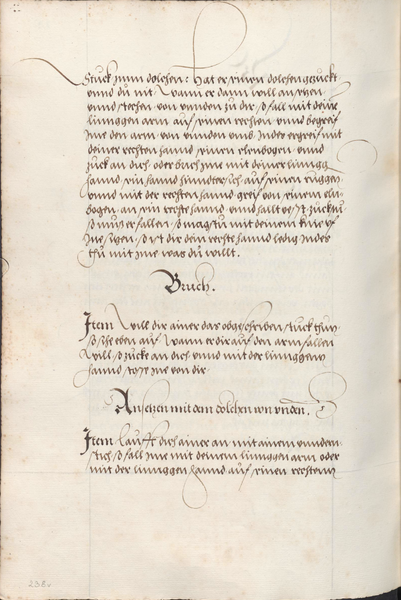 Stuck zum dolchen: Hat er einen dolchen gezuckt
vnnd du nit, Wann er dann will an sehen
vnnd stechen von vnnden zu dir, so fall mit deim
linnggen arm auf seinen rechten vnnd begreif
Ime den arm von vnnden vnnd Inder ergreif mit
deiner rechten hannd seinen elenbogen vnnd
zuck an dich oder brich Ime mit deiner lingg
hannd ein hannd hinndtersich auf seinen ruggen
vnnd mit der rechten hannd greif von seinem eln
bogen an ein rechte hannd vnnd hallt
so mus er fallen, so magstu mit deinem knie vf
Ime so ist dir dein rechte hannd ledig Indes
thu mit Ime was du willt.
Bruch.
Item Will dir ainer das obgeschriben stuck thun
so sihe eben auf Wann er dir auf den arm fallen
Will, so zucke an dich vnnd mit der linnggenn
hannd stoss Ime von dir
An sehen mit dem dolchen von vnden.
Item laufft dich ainer an mit ainem vnndern
stich, so fall Ime mit deinem linnggen arm oder
mit der linnggen hannd auf seinen rechtenn
238v